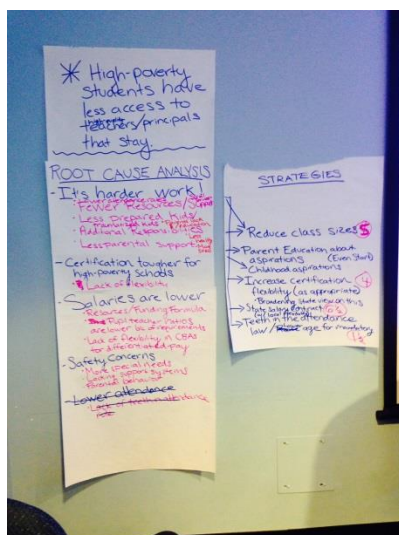 * High-poverty
students have
less access to
teachers/principals
that stay.
ROOT CAUSE ANALYSIS
- It's harder work!
Fewer Resources/
Less prepared kids/
Additional Responsibilities
Less parental support
- Certification tougher for
high-poverty schools
Lack of flexibility
- Salaries are lower
Resources/Funding Formula
Pupil teacher ratios
are lower bc of requirements
Lack of flexibility in CBAs
for differentiated pay
- Safety Concerns
More special needs
Lacking support systems
Parental behavior
- Lower attendance
Lack of teeth in attendance
STRATEGIES
Reduce class sizes 5
Parent Education about
aspirations (Even Start)
Childhood aspirations
Increase certification 4
flexibility (as appropriate)
- Broadening state view on this
State Salary Contract
Teeth in the attendance
law/ age for mandatory